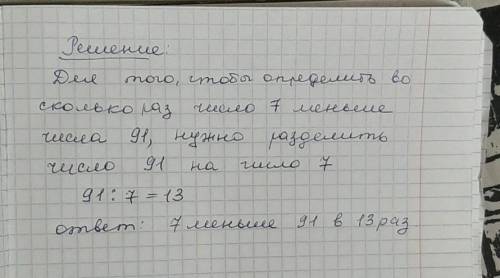 Решение:
Для того, чтобы определить во
сколько раз число 7 меньше
числа 91, нужно разделить
число 91 на число 7
91 : 7 = 13
ответ: 7 меньше 91 в 13 раз